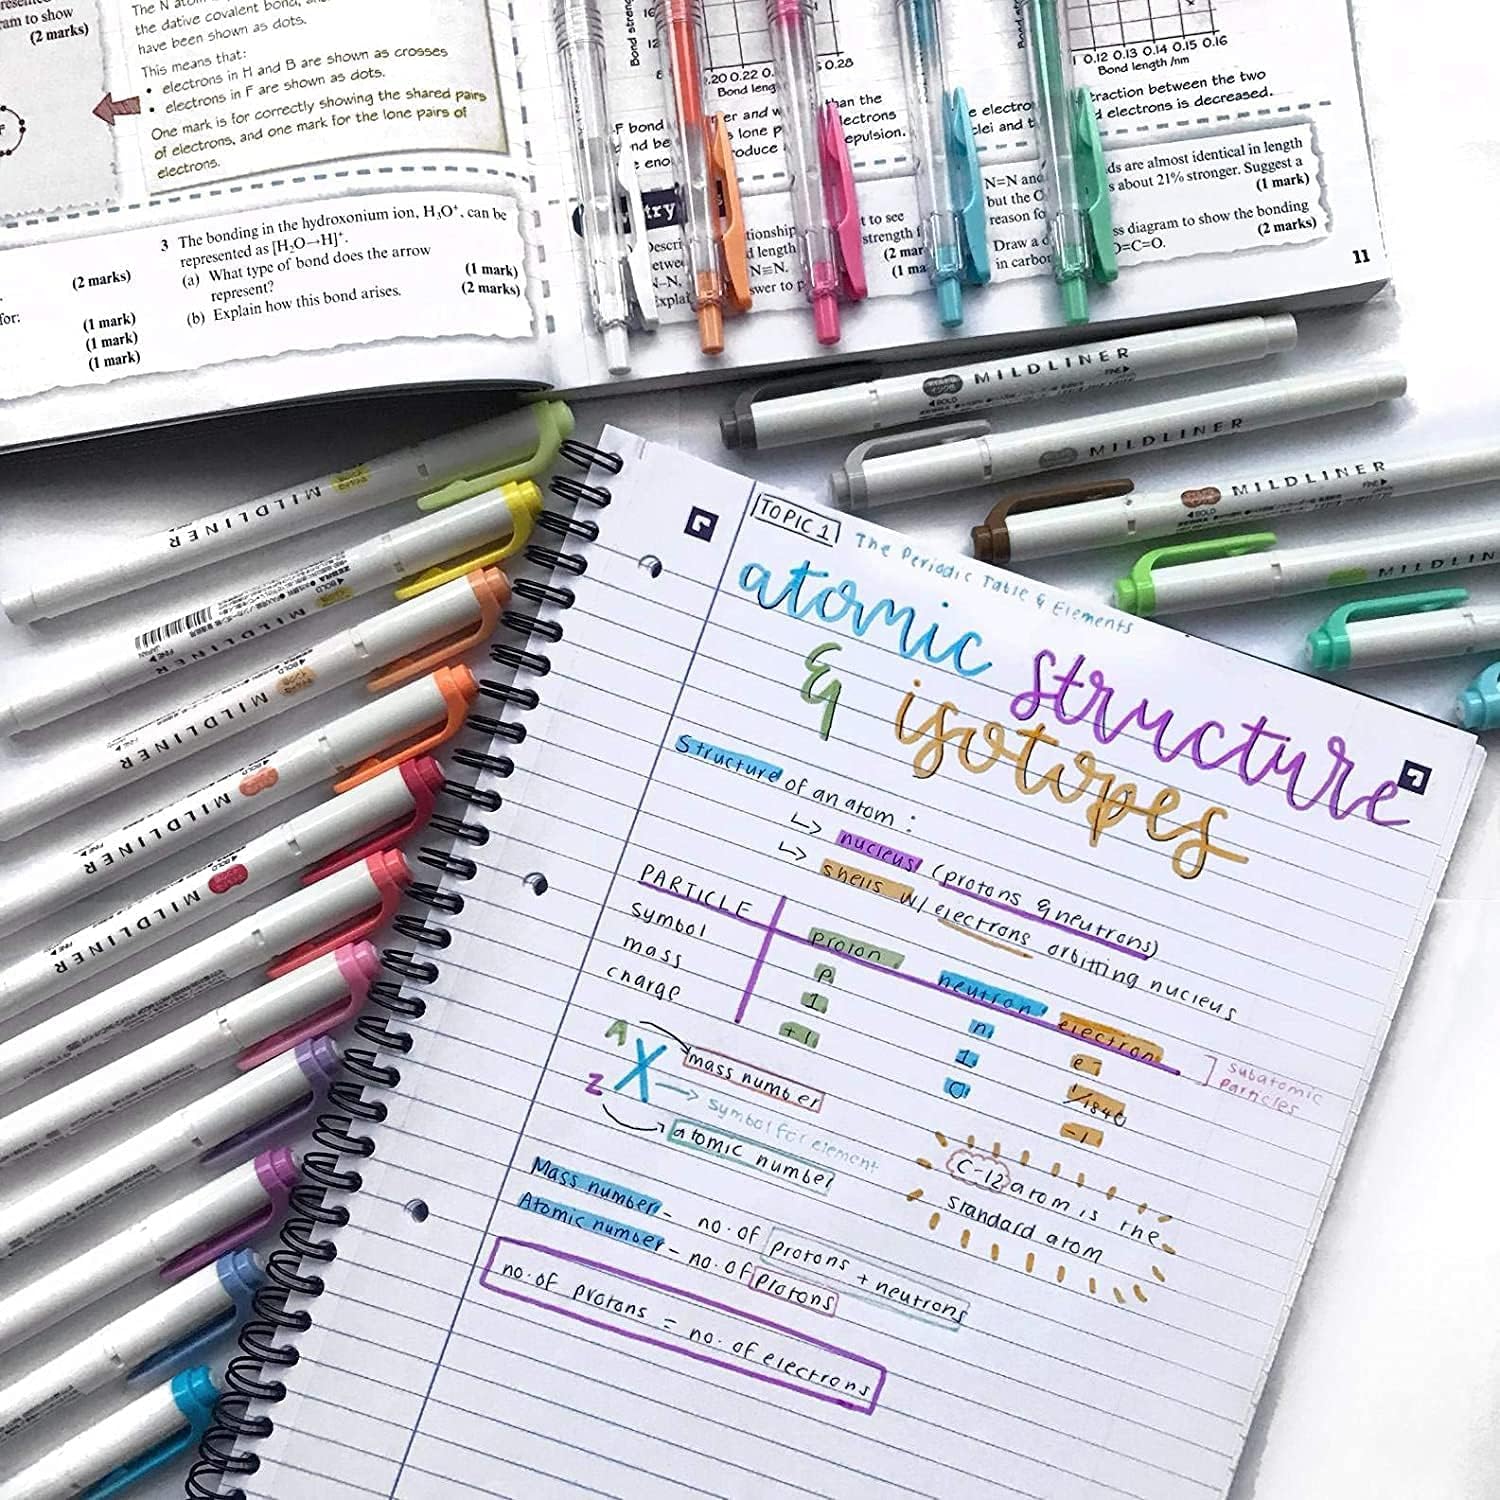 am to show
(2 marks)
the dative covalent bond, and
have been shown as dots.
This means that:
• electrons in H and B are shown as crosses
• electrons in F are shown as dots.
One mark is for correctly showing the shared pairs
of electrons, and one mark for the lone pairs of
electrons.
(2 marks)
for:
(1 mark)
(1 mark)
(1 mark)
3 The bonding in the hydroxonium ion, H₃O⁺, can be
represented as [H₂O→H]⁺.
(a) What type of bond does the arrow
represent? (1 mark)
(b) Explain how this bond arises. (2 marks)
16
12
8
0.20 0.22 0.28
Bond
0.12 0.13 0.14 0.15 0.16
Bond length /nm
F bond er and w than the
lone p lectrons
oduce epulsion.
e electro traction between the two
clei and t electrons is decreased.
try
t to see
d length strength
N≡N. (2 mar
swer to p (1 ma
N=N and ds are almost identical in length
but the O s about 21% stronger. Suggest a
reason fo (1 mark)
Draw a d ss diagram to show the bonding
in carbon O=C=O. (2 marks)
11
MILDLINER
BOLD
FINE
MILDLINER
MILDLINER
BOLD
FINE
MILDLINER
MILDLINER
MILDLINER
ZEBRA
BOLD
FINE
JAPAN
MILDLINER
BOLD
MILDLINER
BOLD
FINE
MILDLINER
BOLD
FINE
TOPIC 1 The Periodic Table & Elements
atomic structure
& isotopes
Structure of an atom:
↳ nucleus (protons & neutrons)
↳ shells w/ electrons orbitting nucleus
PARTICLE proton neutron electron
symbol p n e-
mass 1 1 1/1840
charge +1 0 -1
subatomic
particles
A
X
Z
mass number
symbol for element
atomic number
C-12 atom is the
standard atom
Mass number - no. of protons + neutrons
Atomic number - no. of protons
no. of protons = no. of electrons